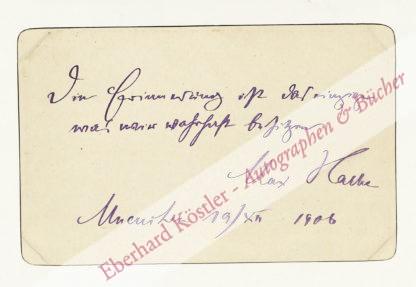 Die Erinnerung ist das einzige
was wir wahrhaft besitzen
Max Halbe
München 19/XII 1906
Eberhard Köstler - Autographen & Bücher